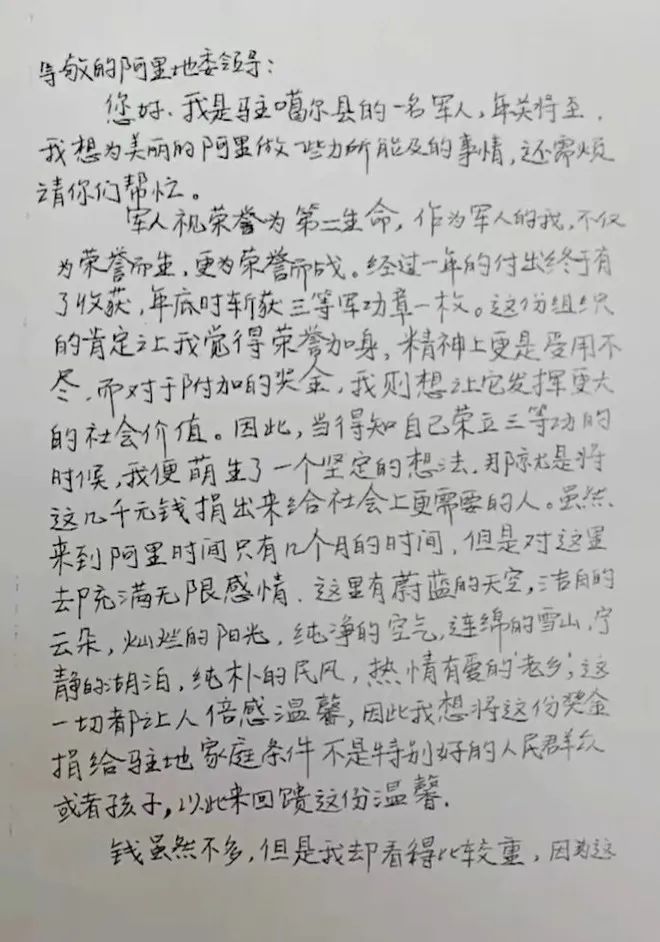 尊敬的阿里地委领导:
您好、我是驻噶尔县的一名军人,年关将至.
我想为美丽的阿里做一些力所能及的事情,还需烦
请你们帮忙。
军人视荣誉为第二生命,作为军人的我,不仅
为荣誉而生,更为荣誉而战。经过一年的付出终于有
了收获,年底时斩获三等军功章一枚。这份组织
的肯定让我觉得荣誉加身,精神上更是受用不
尽.而对于附加的奖金,我则想让它发挥更大
的社会价值。因此,当得知自己荣立三等功的
时候,我便萌生了一个坚定的想法.那就是将
这几千元钱捐出来给社会上更需要的人。虽然
来到阿里时间只有几个月的时间,但是对这里
却充满无限感情.这里有蔚蓝的天空,洁白的
云朵,灿烂的阳光.纯净的空气,连绵的雪山,宁
静的湖泊,纯朴的民风,热情有爱的老乡;这
一切都让人倍感温馨,因此我想将这份奖金
捐给驻地家庭条件不是特别好的人民群众
或者孩子,以此来回馈这份温馨.
钱虽然不多,但是我却看得比较重,因为这